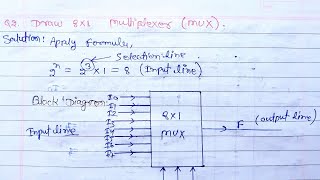 Q2. Draw 8x1 Multiplexer (MUX).
Solution: Apply Formula,
Selection line
2^n = 2^3 x 1 = 8 (Input line)
Block Diagram:
I0
I1
I2
I3
Input line
I4
I5
I6
I7
8x1
MUX
F (output line)